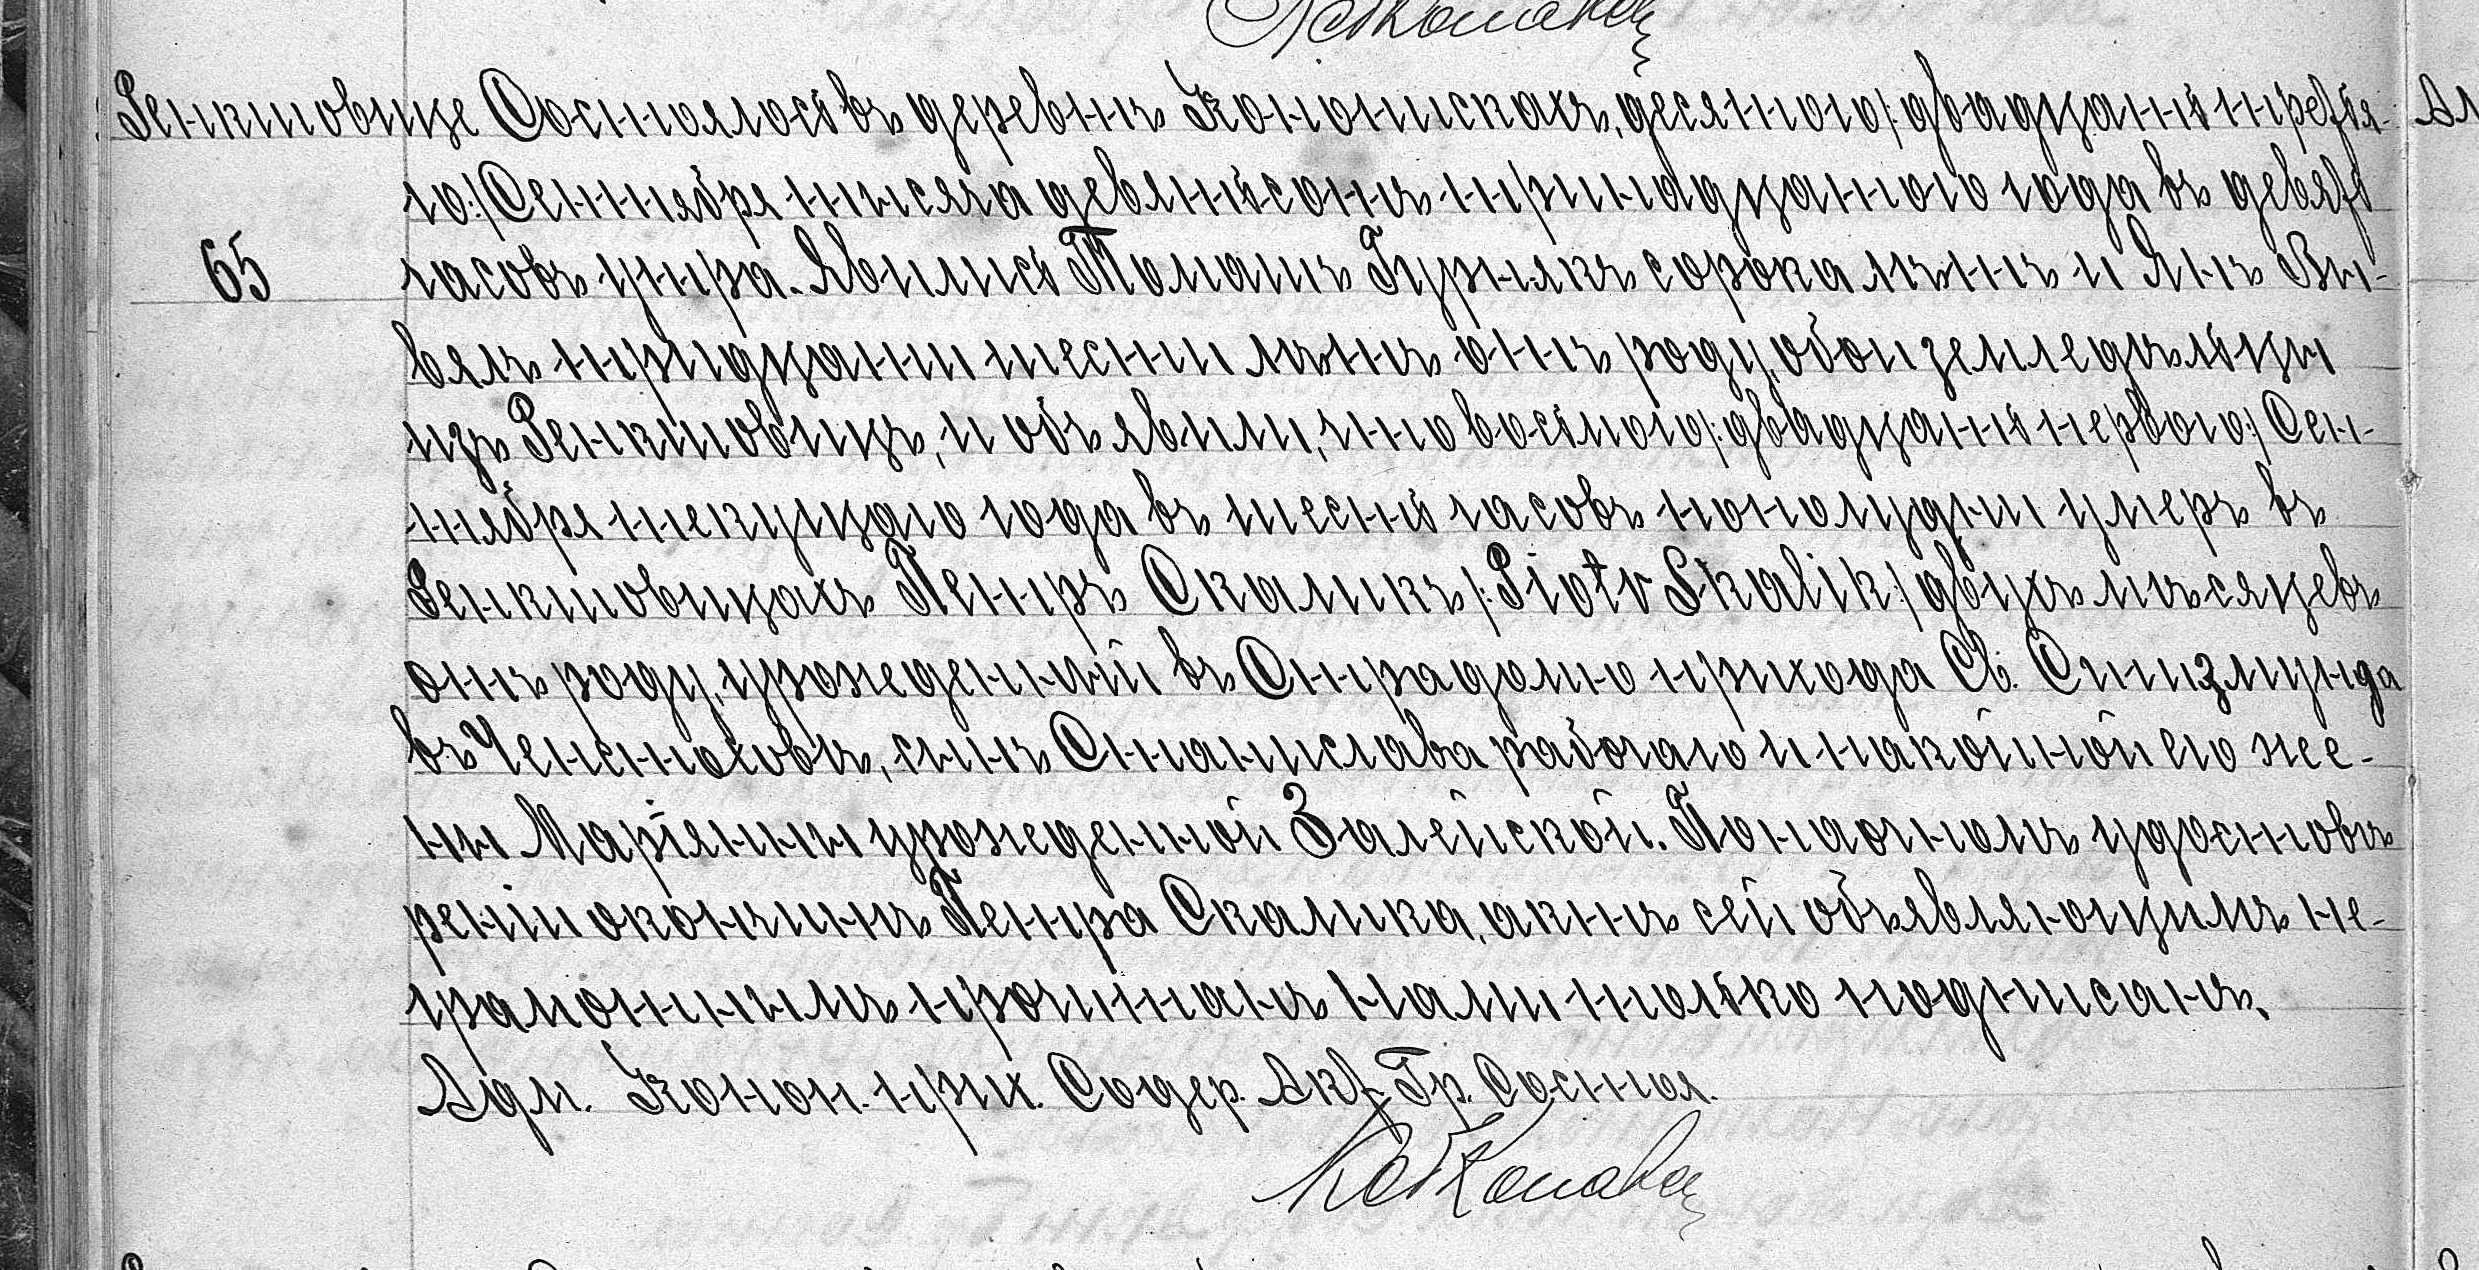 Ренкшовице Состоялось въ деревнѣ Конопискахъ, десятого /:двадцать третья-
го:/ Сентября тысяча девятьсотъ тринадцатого года въ девять
65
часовъ утра. Явились Томашъ Гурнякъ сорока лѣтъ и Янъ Вы-
вялъ тридцати шести лѣтъ отъ роду, обои земледѣльцы
изъ Ренкшовицъ, и объявили, что восьмого /:двадцать первого:/ Сен-
тября текущаго года въ шесть часовъ пополудни умеръ въ
Ренкшовицахъ Петръ Скаликъ /:Piotr Skalik:/ двухъ мѣсяцевъ
отъ роду, урожденный въ Острадомю прихода Св. Сигизмунда
въ Ченстоховѣ, сынъ Станислава рабочаго и покойной его же-
ны Маріянны урожденной Залейской. По наочномъ удостовѣ
реніи окончинѣ Петра Скалика, актъ сей объявляющимъ не-
грамотнымъ прочитанъ Нами только подписанъ.
Адм. Коноп. прих. Содер. Акт. Гр. Состоя.